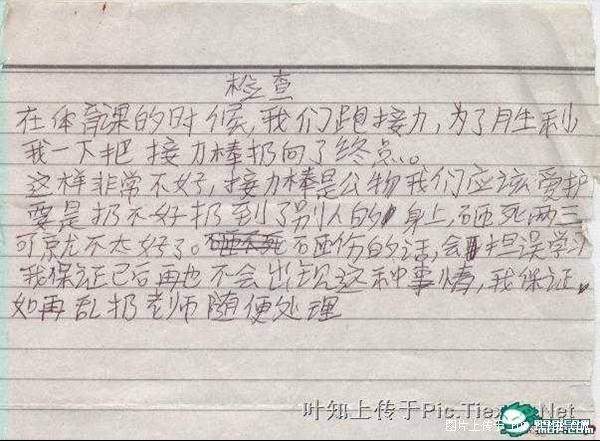 检查
在体育课的时候,我们跑接力,为了胜利
我一下把接力棒扔向了终点。
这样非常不好,接力棒是公物我们应该爱护
要是扔不好扔到了别人的身上,砸死两三
可就不太好了。砸不死砸伤的话,会担误学习
我保证已后再也不会出现这种事情,我保证。
如再乱扔老师随便处理
叶知上传于Pic.Tiexue.Net
图片上传于